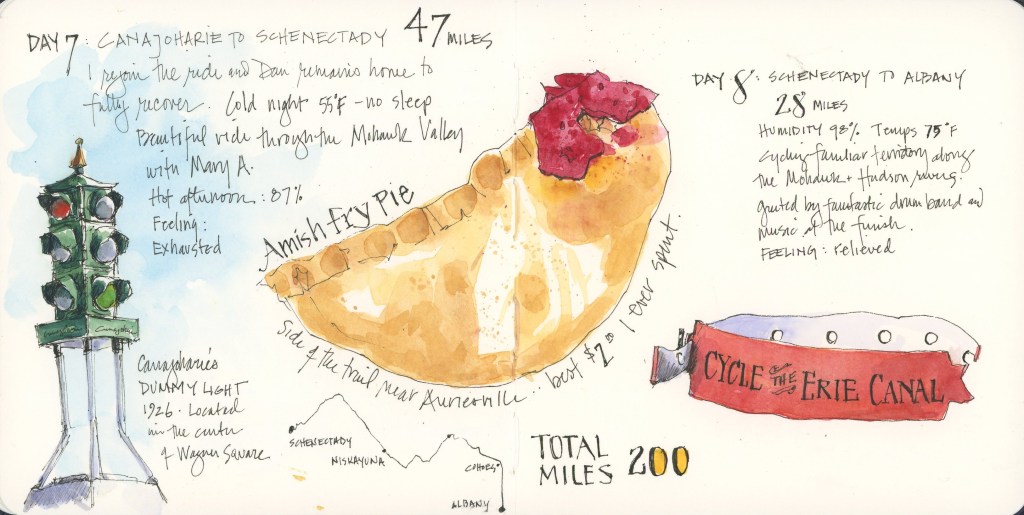 DAY 7: CANAJOHARIE TO SCHENECTADY 47 MILES
I rejoin the ride and Dan remains home to
fully recover. Cold night 55°F - no sleep
Beautiful ride through the Mohawk Valley
with Mary A.
Hot afternoon: 87%
Feeling:
Exhausted
AMISH FRY PIE
Side of the trail near Auriesville.. best $2.00 I ever spent.
Canajoharie's
DUMMY LIGHT
1926. Located
in the center
of Wagner Square
SCHENECTADY
NISKAYUNA
COHOES
ALBANY
DAY 8: SCHENECTADY TO ALBANY
28 MILES
HUMIDITY 98% Temps 75°F
Cycling familiar territory along
the Mohawk + Hudson rivers.
Greeted by fantastic drum band and
music at the finish.
FEELING: relieved
CYCLE OF THE ERIE CANAL
TOTAL
MILES 200